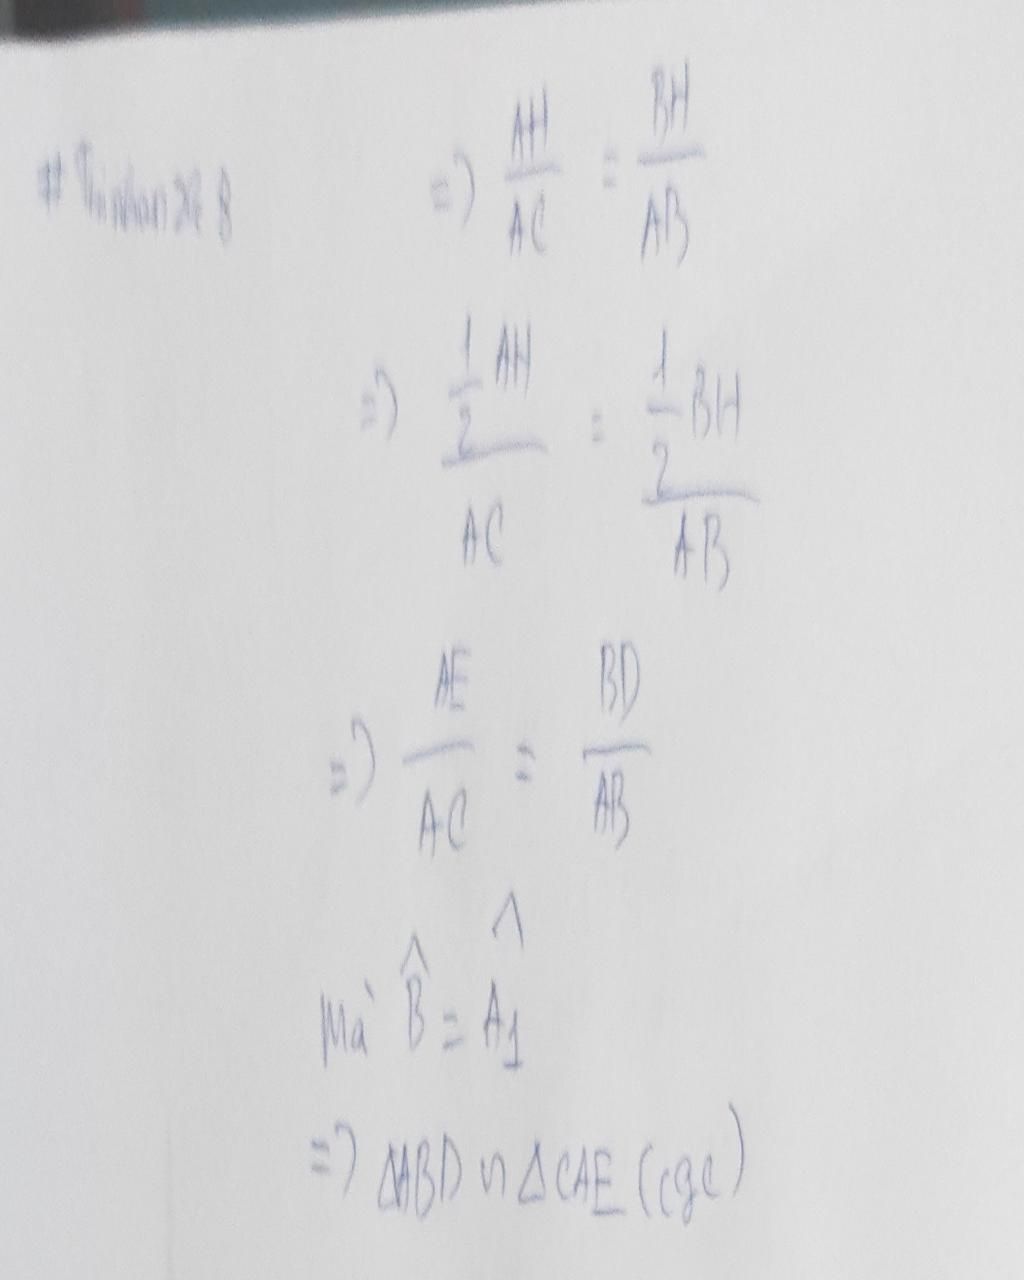 => AH/AC = BH/AB
=> 1/2 AH/AC = 1/2 BH/AB
=> AE/AC = BD/AB
Mà B̂ = Â1
=> ΔABD ∽ ΔCAE (cgc)